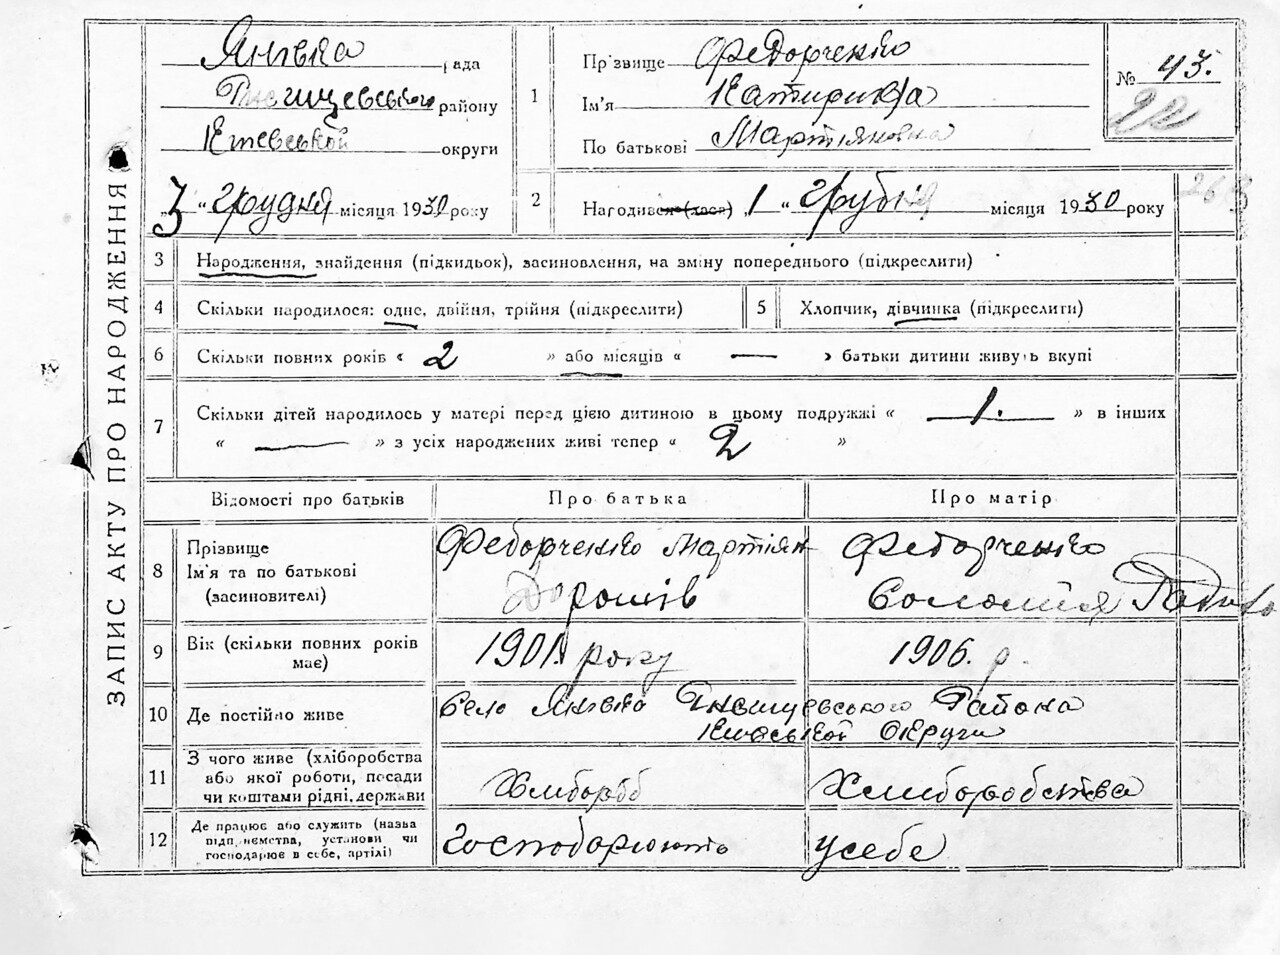 ЗАПИС АКТУ ПРО НАРОДЖЕННЯ
Янівка рада
району
округи
"3" грудня місяця 1930 року
1
Прізвище Федорченко
Ім'я Катирина
По батькові Мартіяновна
№ 43.
2
Народився (лася) "1" грудня місяця 1930 року
3 Народження, знайдення (підкидьок), засиновлення, на зміну попереднього (підкреслити)
4 Скільки народилося: одне, двійня, трійня (підкреслити)
5 Хлопчик, дівчинка (підкреслити)
6 Скільки повних років « 2 » або місяців « — » батьки дитини живуть вкупі
7 Скільки дітей народилось у матері перед цією дитиною в цьому подружжі « 1. » в інших
« — » з усіх народжених живі тепер « 2 »
Відомості про батьків
Про батька
Про матір
8 Прізвище
Ім'я та по батькові
(засиновителі)
Федорченко Мартіян
Дорошів
Федорченко
Соломія
9 Вік (скільки повних років
має)
1901. року
1906. р.
10 Де постійно живе
Село Янівка Района
Округи
11 З чого живе (хліборобства
або якої роботи, посади
чи коштами рідні, держави
Хлибороб
Хлиборобства
12 Де працює або служить (назва
підприємства, установи чи
господарює в себе, артілі)
Господорюють усебе